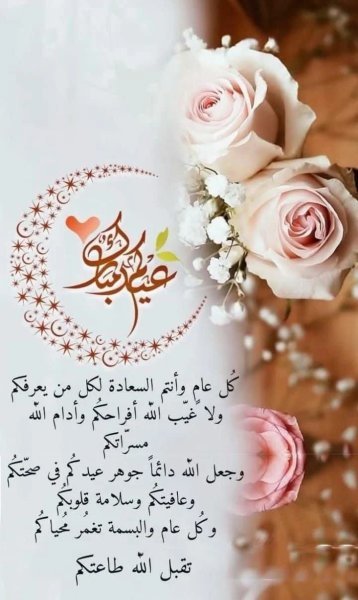 عيدكم مبارك
كُل عام وأنتم السعادة لكل من يعرفكم
ولا غيّب الله أفراحكُم وأدام الله
مسرّاتكم
وجعل الله دائماً جوهر عيدكُم في صحّتكُم
وعافيتكُم وسلامة قلوبكُم
وكُل عام والبسمة تغمُر مُحياكُم
تقبل الله طاعتكم